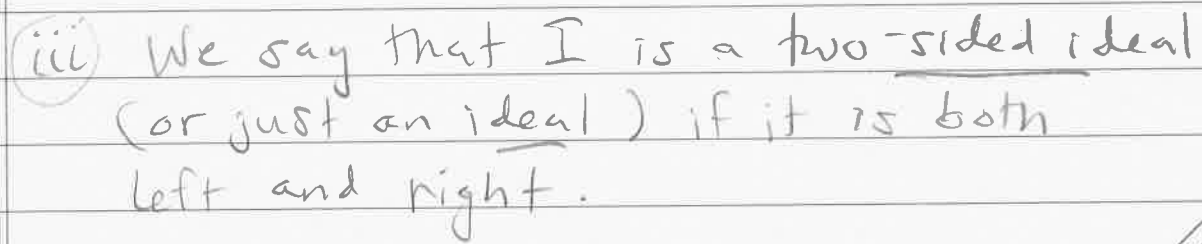 (iii) We say that I is a two-sided ideal
(or just an ideal) if it is both
left and right.